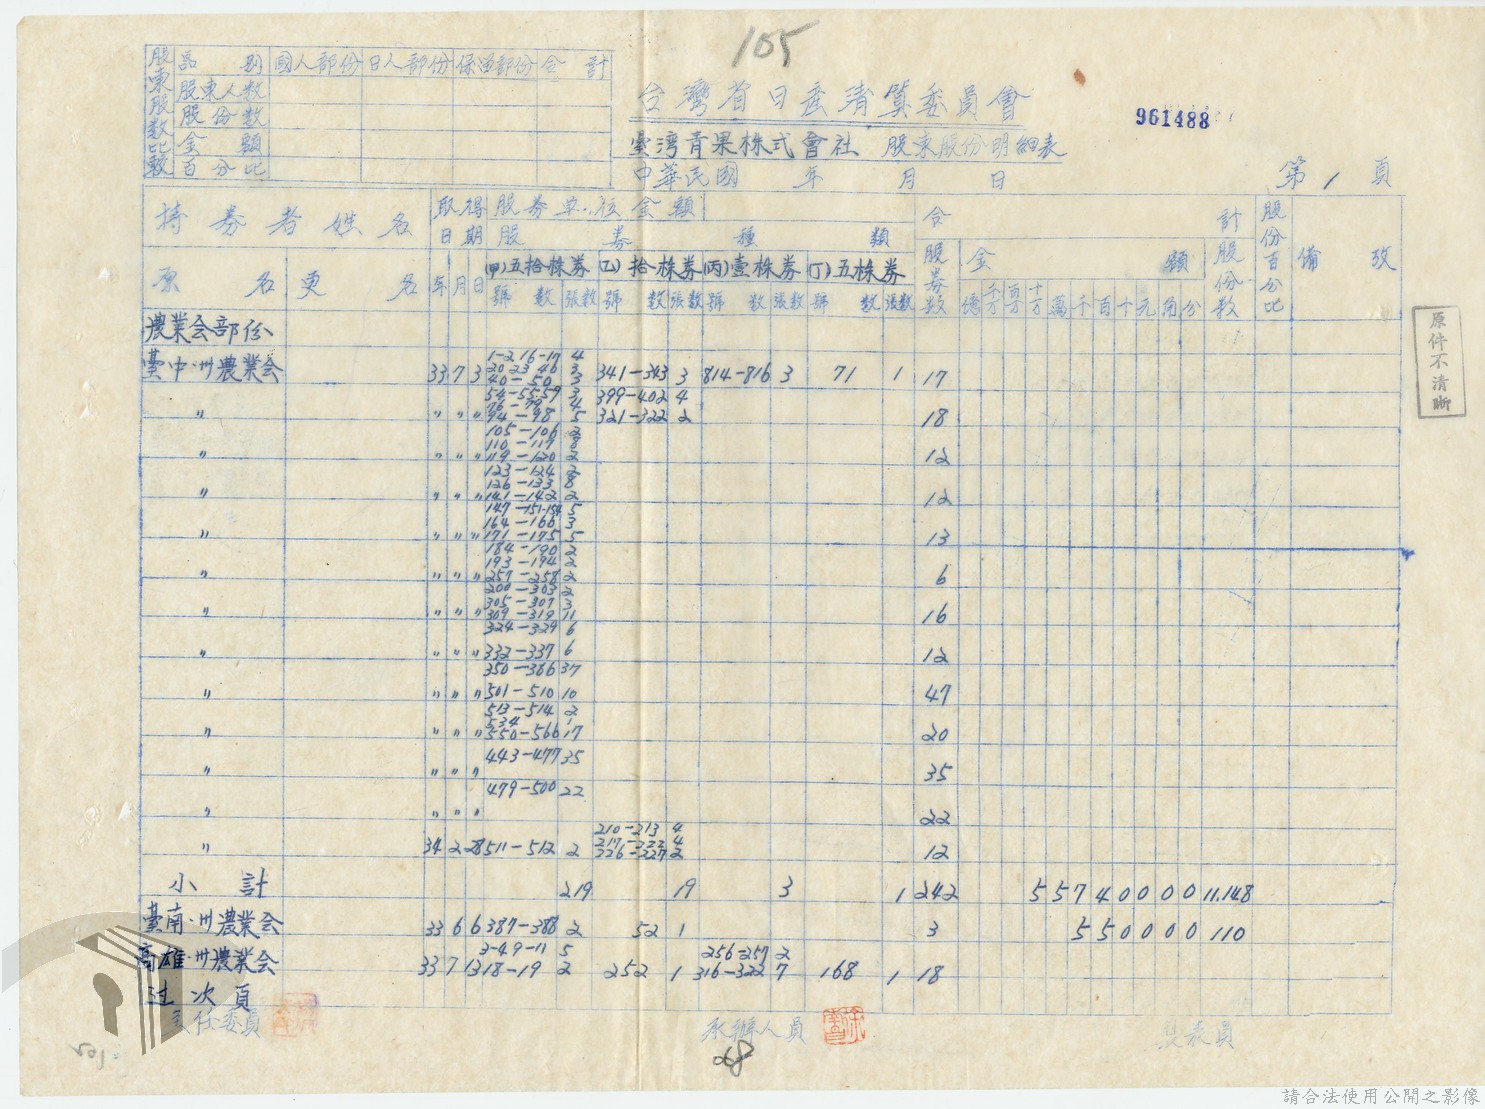 105
961488
股東股數比較
區別 國人部份 日人部份 保留部份 合計
股東人數
股份數
金額
百分比
台灣省日產清算委員會
臺湾青果株式會社 股東股份明細表
中華民國 年 月 日
第 1 頁
持券者姓名 取得日期 股券單位金額 合計 股份百分比 備攷
股券種類
原名 更名 年 月 日 (甲)五拾株券 (乙)拾株券 (丙)壹株券 (丁)五株券 股券数 金額 股份数
號数 張数 號数 張数 號数 張数 號数 張数 億 千万 百万 十万 萬 千 百 十 元 角 分
農業会部份
臺中州農業会 33 7 3 1-2 16-17 4 341-343 3 814-816 3 71 1 17
20-23 46 3
40-50 3
54-55.59 3 399-402 4
76-79 4
〃 〃 〃 〃 94-98 5 321-322 2 18
105-106 2
110-117 8
〃 〃 〃 〃 119-120 2 12
123-124 2
126-133 8
〃 〃 〃 〃 141-142 2 12
147-151.154 5
164-166 3
〃 〃 〃 〃 171-175 5 13
184-190 2
193-194 2
〃 〃 〃 〃 257-258 2 6
200-303 2
305-307 3
〃 〃 〃 〃 309-319 11 16
324-329 6
〃 〃 〃 〃 332-337 6 12
350-386 37
〃 〃 〃 〃 501-510 10 47
513-514 2
534 1
〃 〃 〃 〃 550-566 17 20
443-477 35
〃 〃 〃 〃 35
479-500 22
〃 〃 〃 〃 22
210-213 4
217-222 4
〃 34 2 28 511-512 2 226-227 2 12
小計 219 19 3 1 242 5 5 7 4 0 0 0 0 11.148
臺南州農業会 33 6 6 387-388 2 52 1 3 5 5 0 0 0 0 110
3-4 9-11 5 256-257 2
高雄州農業会 33 7 13 18-19 2 252 1 316-322 7 168 1 18
过次頁
主任委員 承辦人員 製表員
68
105
原件不清晰
請合法使用公開之影像